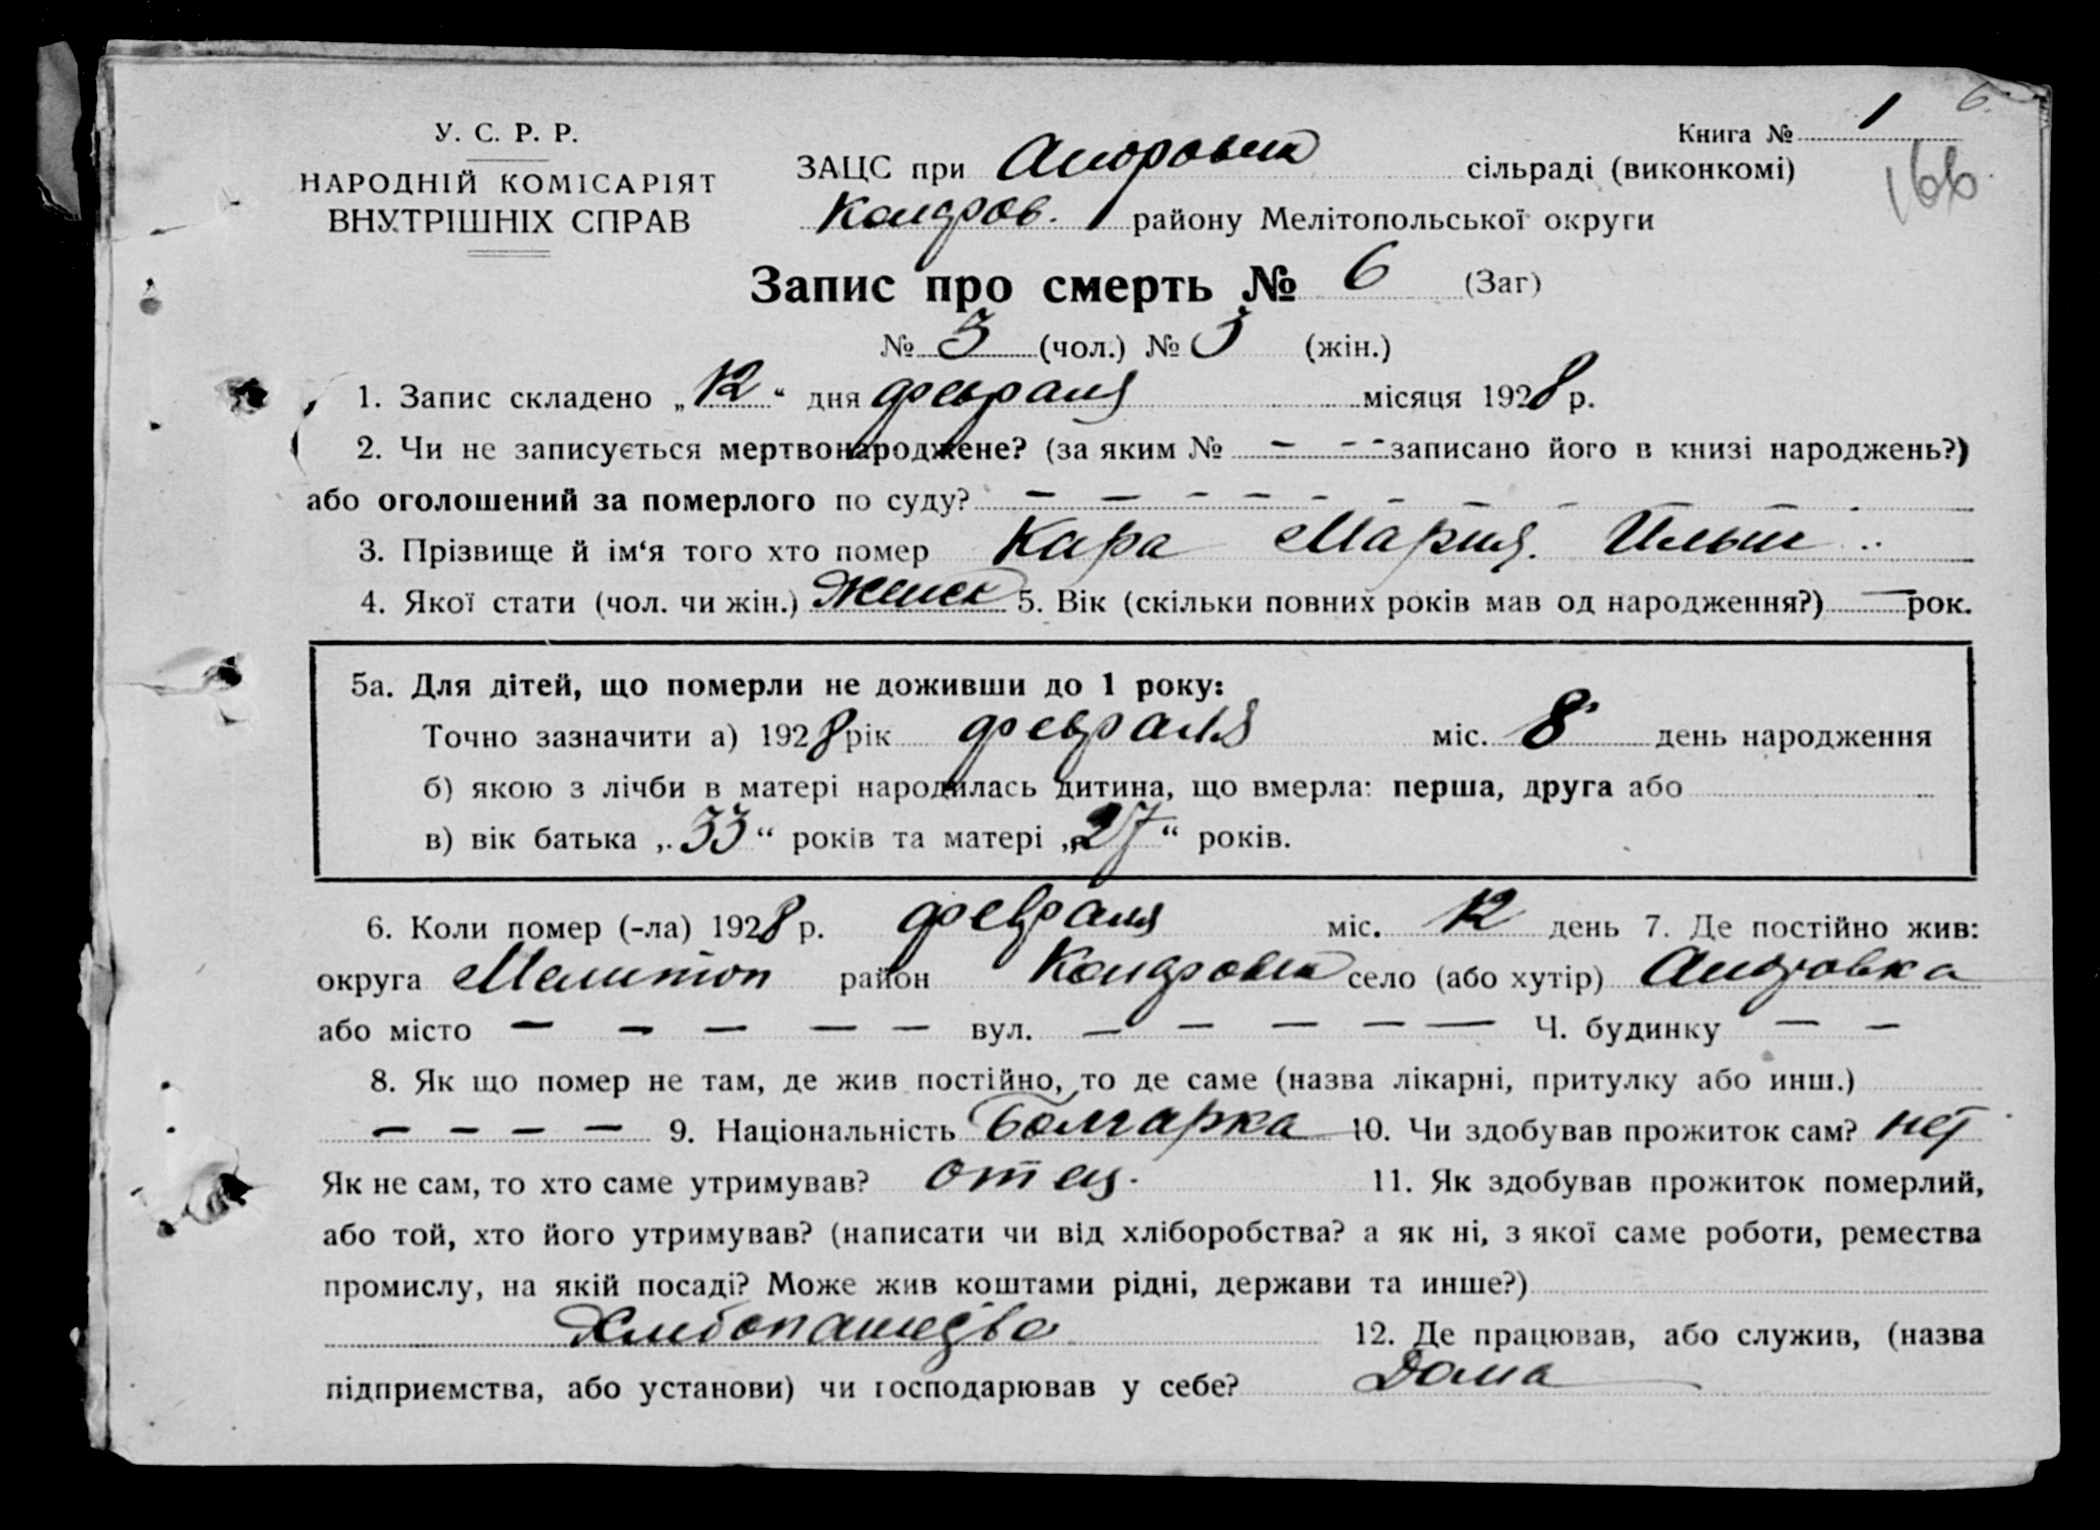 6.
Книга № 1
166
У. С. Р. Р.
НАРОДНІЙ КОМІСАРІЯТ
ВНУТРІШНІХ СПРАВ
ЗАЦС при сільраді (виконкомі)
району Мелітопольської округи
Запис про смерть № 6 (Заг)
№ 3 (чол.) № 3 (жін.)
1. Запис складено „12“ дня февраля місяця 1928 р.
2. Чи не записується мертвонароджене? (за яким № – – - записано його в книзі народжень?)
або оголошений за померлого по суду? – – – – – – – –
3. Прізвище й ім‘я того хто помер Кара Мария Ильин
4. Якої стати (чол. чи жін.) женск 5. Вік (скільки повних років мав од народження?) — рок.
5а. Для дітей, що померли не доживши до 1 року:
Точно зазначити а) 1928 рік февраля міс. 8 день народження
б) якою з лічби в матері народилась дитина, що вмерла: перша, друга або
в) вік батька „33“ років та матері „27“ років.
6. Коли помер (-ла) 1928 р. февраля міс. 12 день 7. Де постійно жив:
округа Мелитоп район село (або хутір)
або місто – – – – – вул. – – – – – Ч. будинку – –
8. Як що помер не там, де жив постійно, то де саме (назва лікарні, притулку або инш.)
– – – – 9. Національність болгарка 10. Чи здобував прожиток сам? нет
Як не сам, то хто саме утримував? отец. 11. Як здобував прожиток померлий,
або той, хто його утримував? (написати чи від хліборобства? а як ні, з якої саме роботи, ремества
промислу, на якій посаді? Може жив коштами рідні, держави та инше?)
12. Де працював, або служив, (назва
підприємства, або установи) чи господарював у себе? Дома